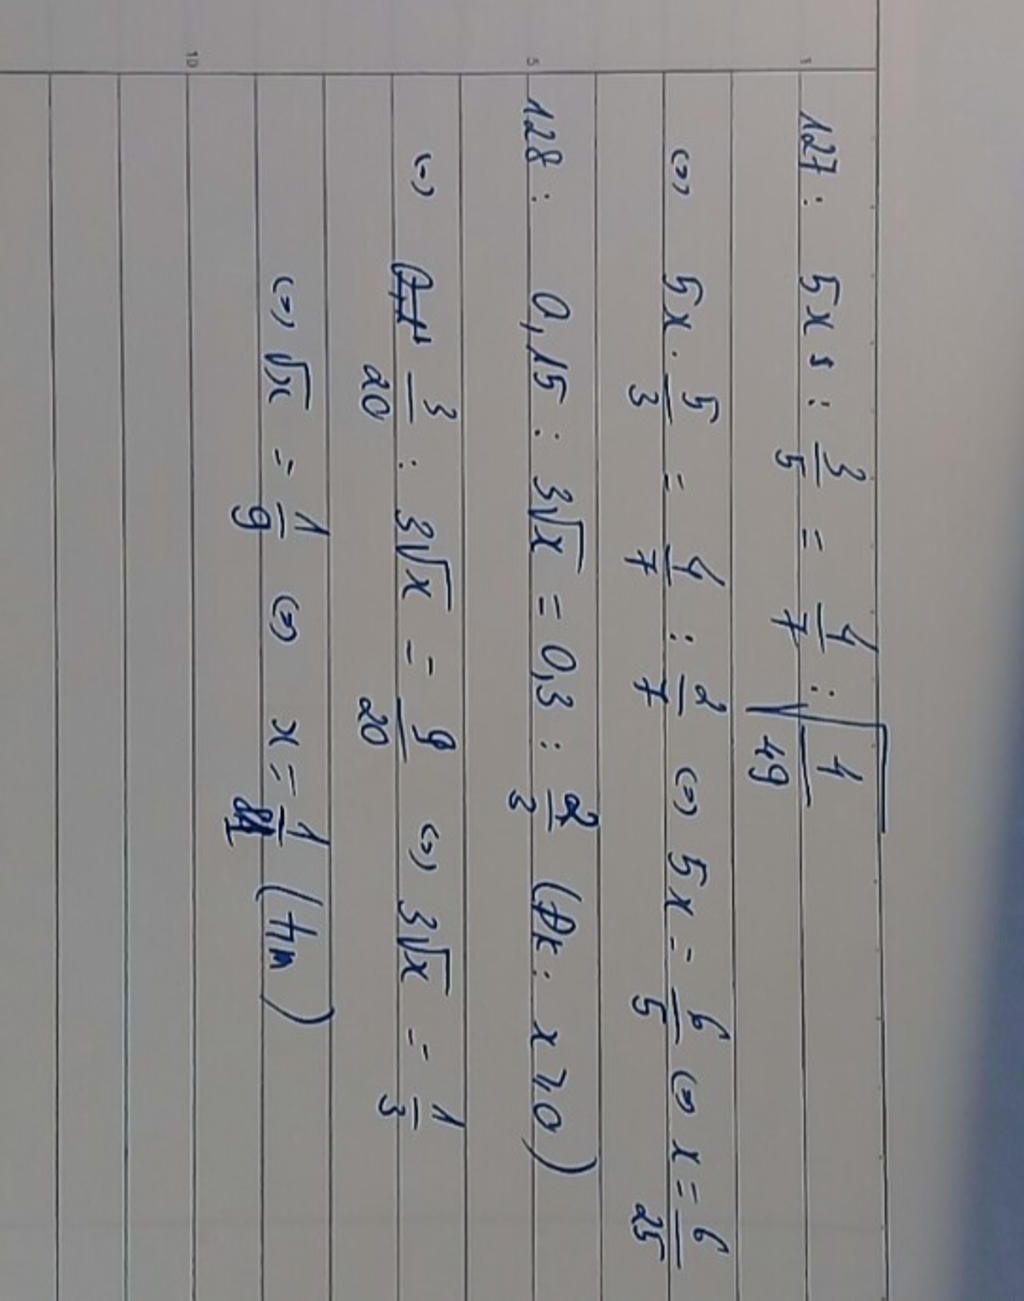 1
127 : 5x : 3/5 = 4/7 : √(4/49)
(=) 5x . 5/3 = 4/7 : 2/7 (=) 5x = 6/5 (=) x = 6/25
5
128 : 0,15 : 3√x = 0,3 : 2/3 (Đk : x ≥ 0)
(=) 3/20 : 3√x = 9/20 (=) 3√x = 1/3
(=) √x = 1/9 (=) x = 1/81 (tm)
10